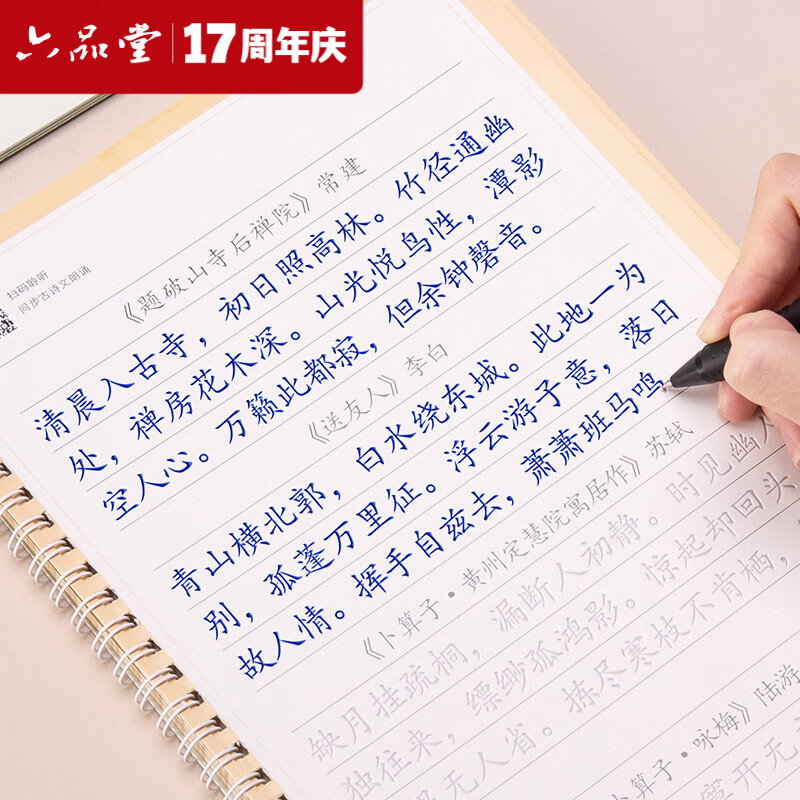 六品堂 17周年庆
扫码聆听
同步古诗文朗诵
《题破山寺后禅院》常建
清晨入古寺，初日照高林。竹径通幽
处，禅房花木深。山光悦鸟性，潭影
空人心。万籁此都寂，但余钟磬音。
《送友人》李白
青山横北郭，白水绕东城。此地一为
别，孤蓬万里征。浮云游子意，落日
故人情。挥手自兹去，萧萧班马鸣
《卜算子·黄州定慧院寓居作》苏轼
缺月挂疏桐，漏断人初静。时见幽人
独往来，缥缈孤鸿影。惊起却回头，
无人省。拣尽寒枝不肯栖，
卜算子·咏梅》陆游
寞开无